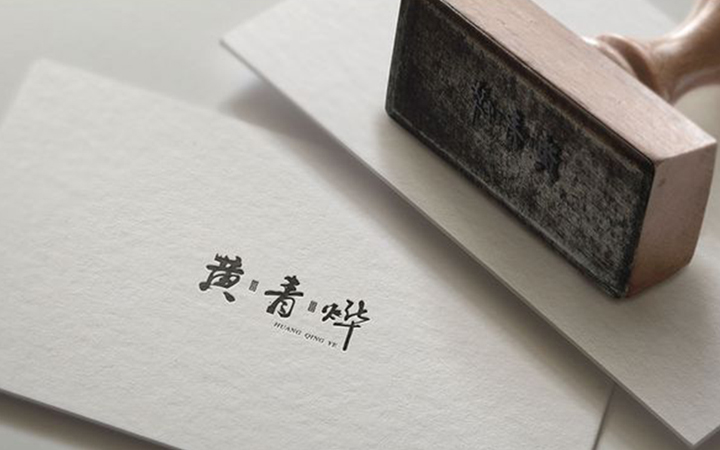 黄青烨
HUANG QING YE